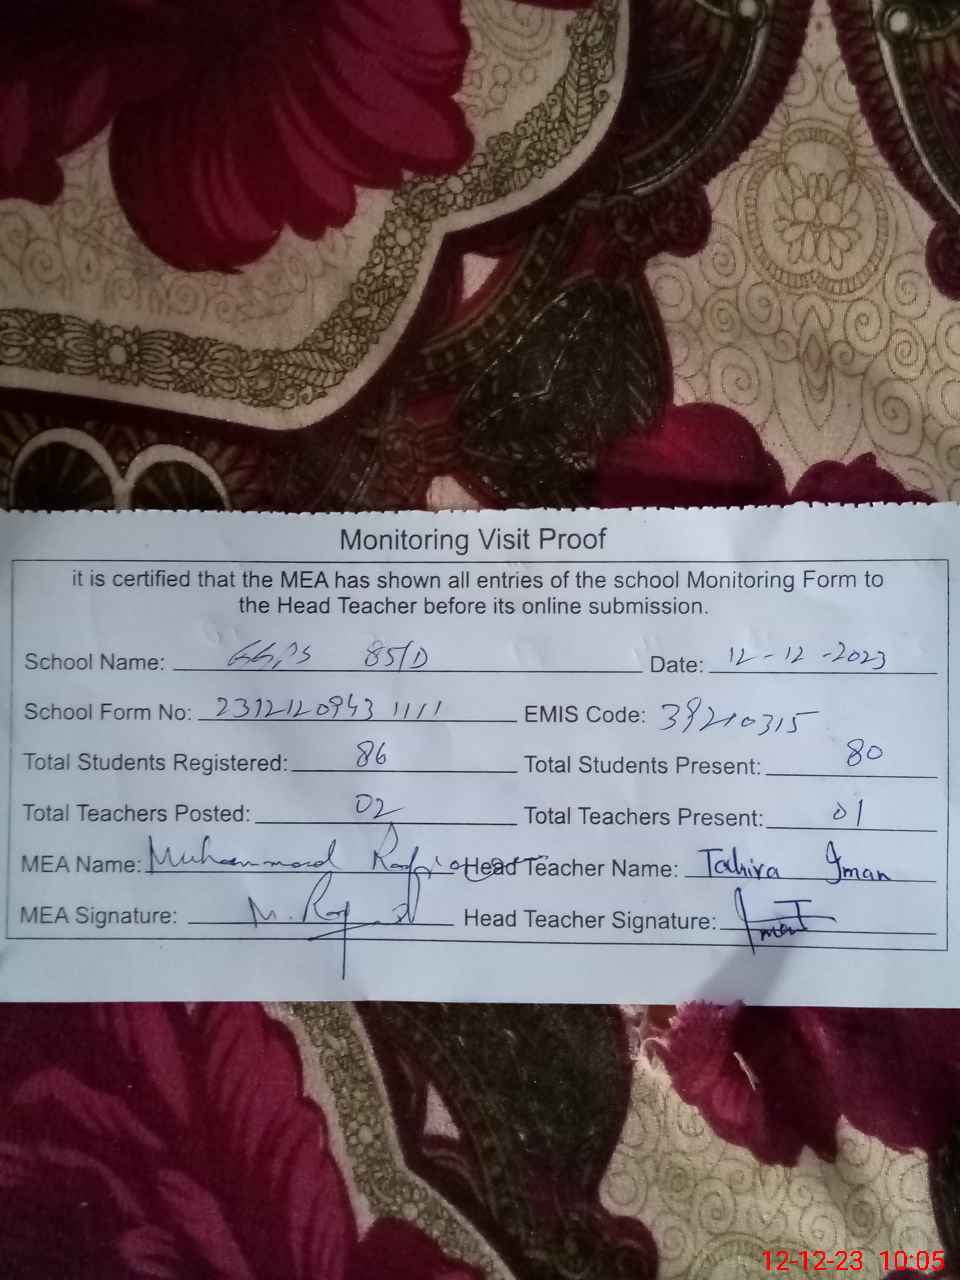 Monitoring Visit Proof
it is certified that the MEA has shown all entries of the school Monitoring Form to
the Head Teacher before its online submission.
School Name: GGPS 85/D Date: 12-12-2023
School Form No: 23121209431111 EMIS Code: 39210315
Total Students Registered: 86 Total Students Present: 80
Total Teachers Posted: 02 Total Teachers Present: 01
MEA Name: Muhammad Head Teacher Name: Tahira Iman
MEA Signature: M. Head Teacher Signature:
12-12-23 10:05